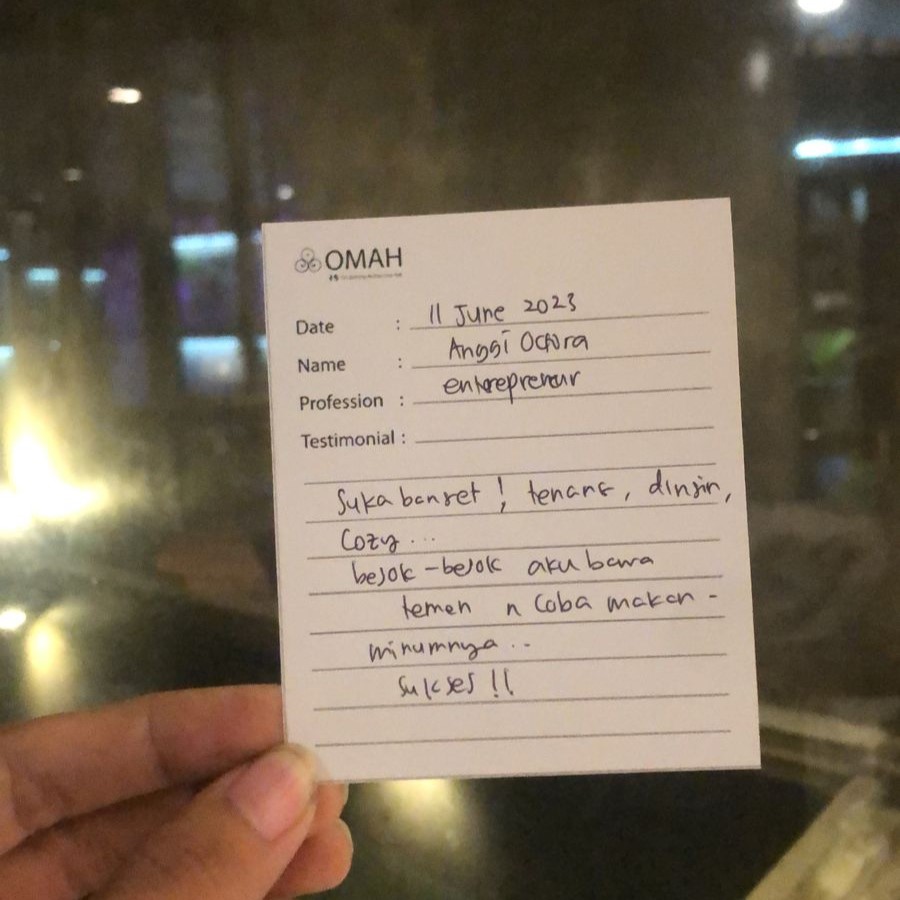 OMAH
Date : 11 June 2023
Name : Anggi Octora
Profession : entrepreneur
Testimonial :
Suka banget ! tenang, dingin,
Cozy...
besok-besok aku bawa
temen n Coba makan-
minumnya..
Sukses !!